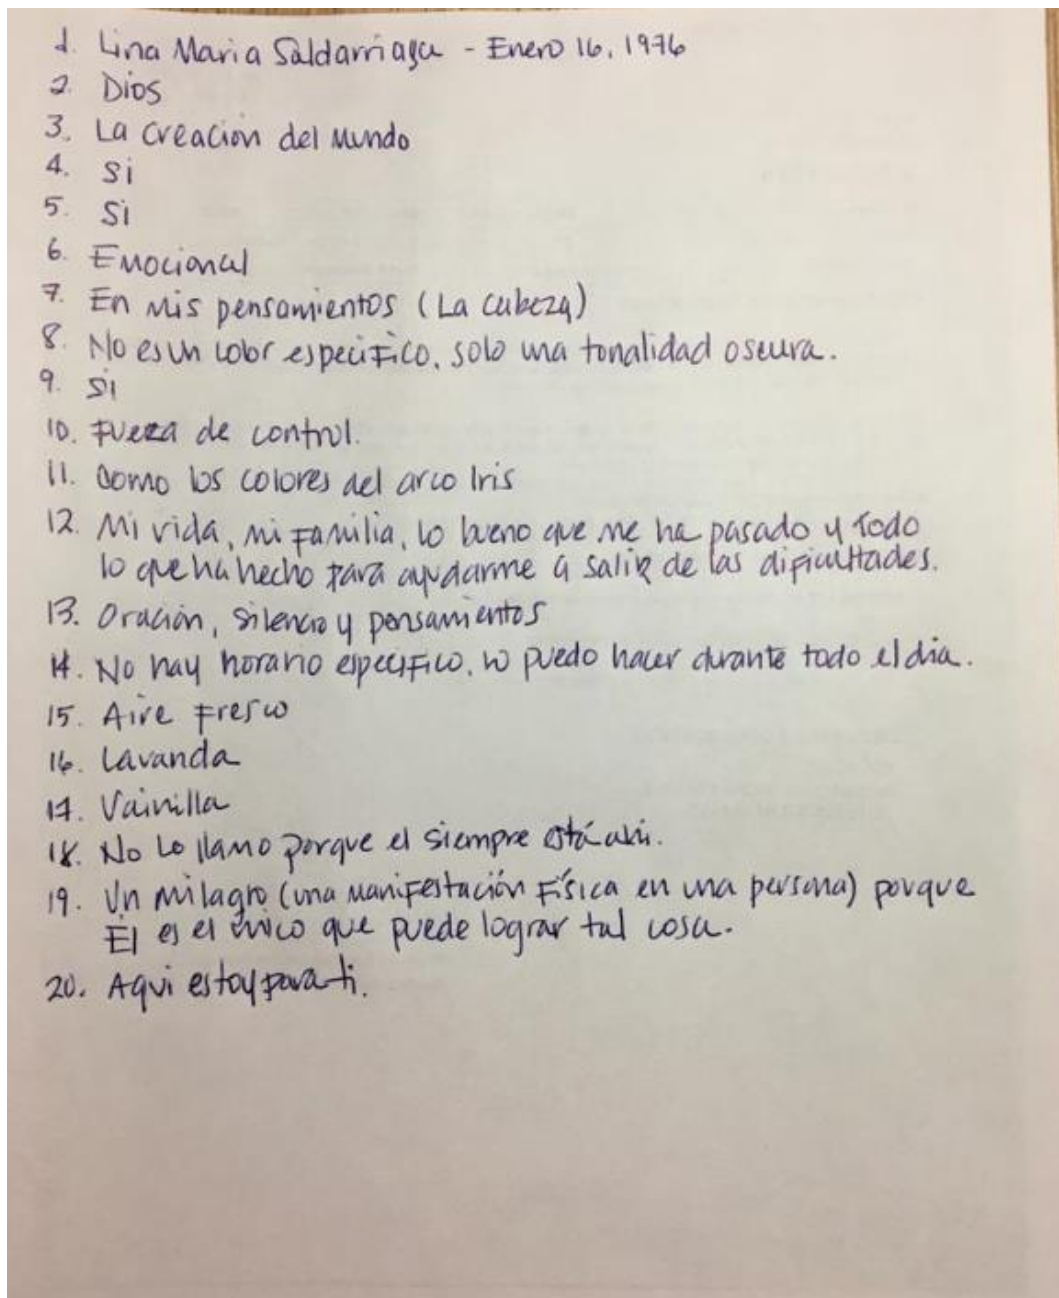 1. Lina Maria Saldarriaga - Enero 16, 1976
2. Dios
3. La Creación del Mundo
4. Si
5. Si
6. Emocional
7. En Mis pensamientos (La Cabeza)
8. No es un color especifico, solo una tonalidad oscura.
9. Si
10. Fuerza de control.
11. Como los colores del arco Iris
12. Mi vida, mi Familia, lo bueno que me ha pasado y Todo
lo que ha hecho para ayudarme a salir de las dificultades.
13. Oración, silencio y pensamientos
14. No hay horario especifico, lo puedo hacer durante todo el dia.
15. Aire Fresco
16. Lavanda
17. Vainilla
18. No Lo llamo porque el siempre está ahi.
19. Un Milagro (una Manifestación Física en una persona) porque
Él es el único que puede lograr tal cosa.
20. Aqui estoy para ti.